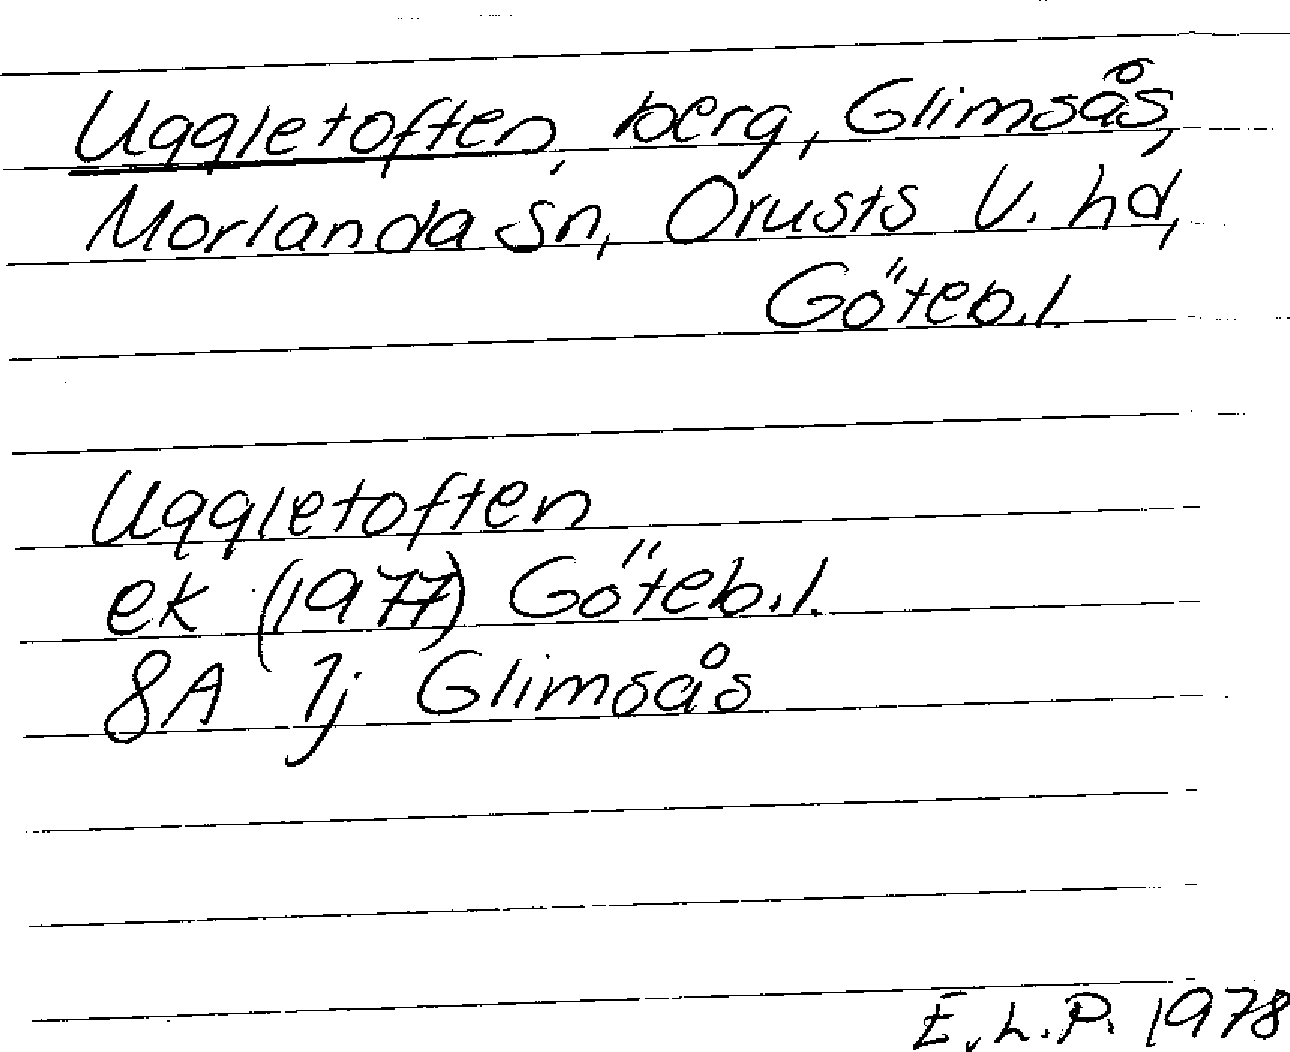 Uggletoften, berg, Glimsås,
Morlanda sn, Orusts V. hd,
Göteb.l.
Uggletoften
ek (1977) Göteb.l.
8A 1j Glimsås
E.L.P. 1978